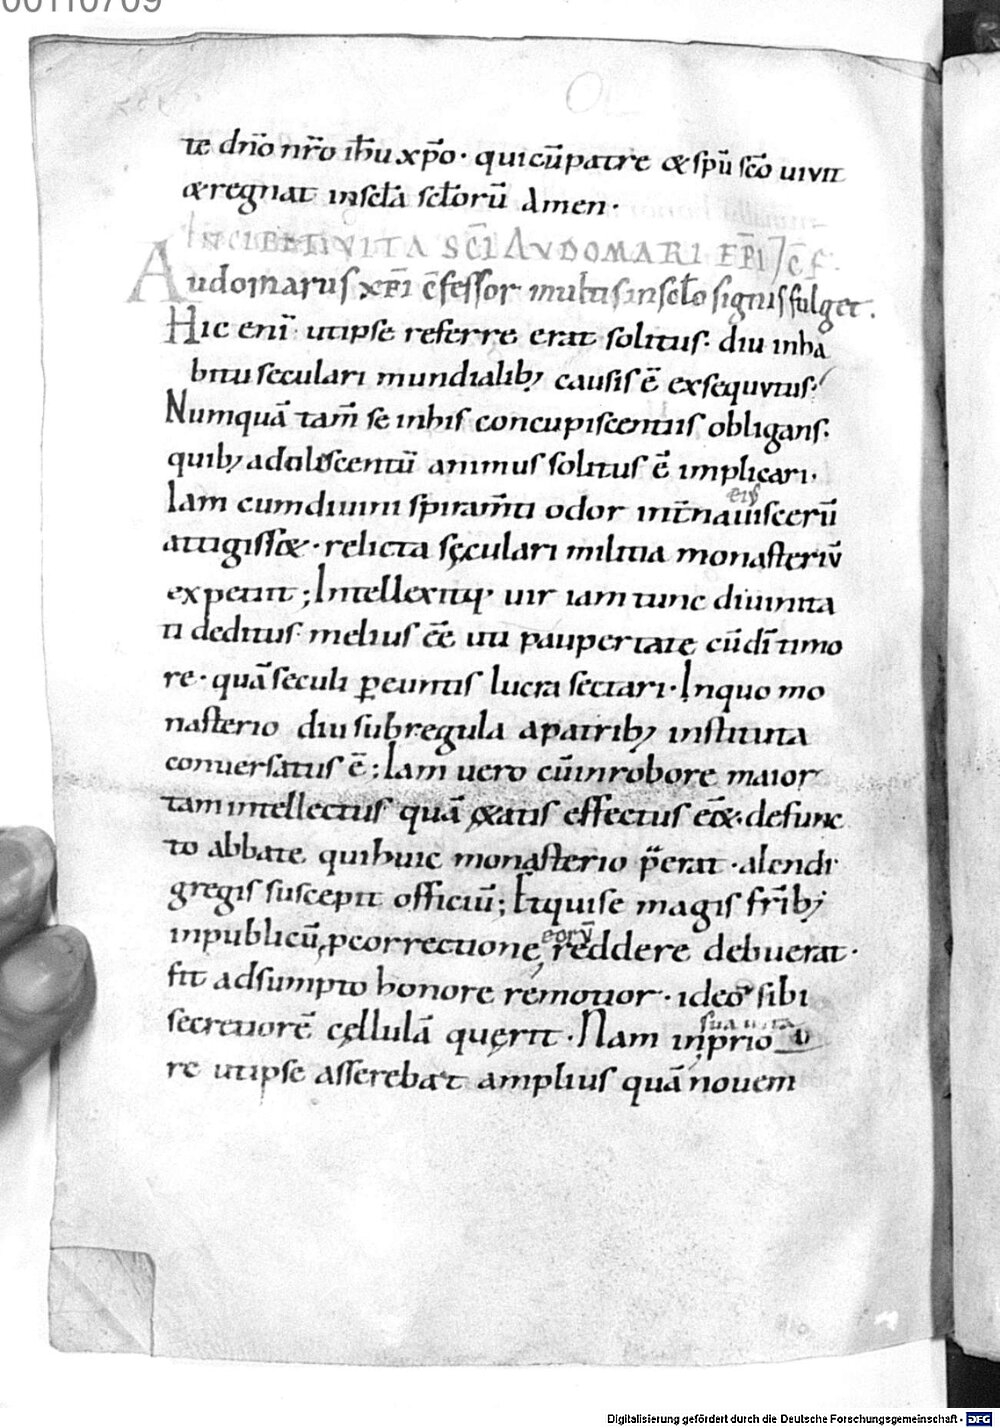 00110709
te dn̄o nr̄o ih̄u xp̄o · qui cū patre & sp̄u sc̄o uiuit
& regnat in sc̄la sc̄lorū Amen ·
INCIPIT VITA SC̄I AVDOMARI EP̄I ⁊ C̄F.
Audomarus xp̄i c̄fessor multis in sc̄lo signis fulget.
Hic eni᷑ ut ipse referre erat solitus · diu in ha
bitu seculari mundialib; causis ē exsequutus ·
Numquā tam̄ se in his concupiscentiis obligans ·
quib; adoliscentū animus solitus ē implicari ·
Iam cum diuini spiram̄ti odor int̄na eius uiscerū
attigiss& · relicta sęculari militia monasteriū
expetiit ; Intellexitq· uir iam tunc diuinita
ti deditus · melius ēe uti paupertate cū dī timo
re · quā seculi ꝑeuntis lucra sectari · In quo mo
nasterio diu sub regula a patrib; instituta
conuersatus ē ; Iam uero cū in robore maior
tam intellectus quā ętatis effectus ēet · defunc
to abbate qui huic monasterio p̄erat · alendi
gregis suscepit officiū ; Et qui se magis fr̄ib;
in publicū, p correctione eorū reddere debuerat ·
fit adsumpto honore remotior · ideo sibi
secretiorē cęllulā quęrit · Nam in prio sua uita
re ut ipse asserebat amplius quā nouem
Digitalisierung gefördert durch die Deutsche Forschungsgemeinschaft - DFG